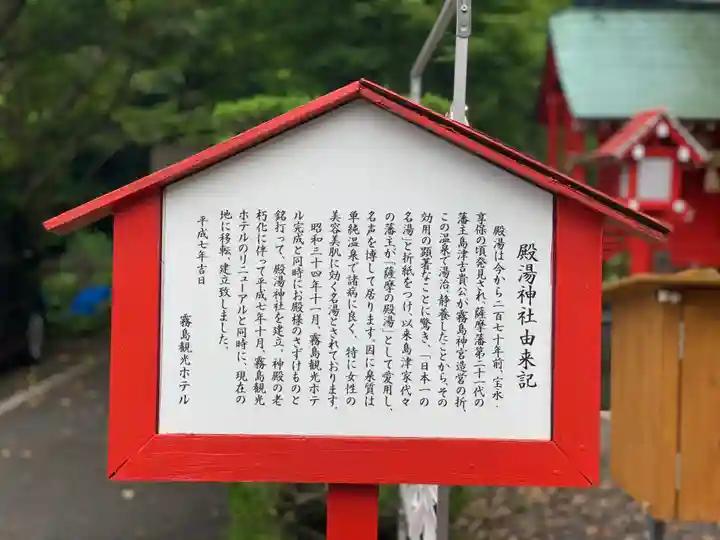 殿湯神社由来記
殿湯は今から二百七十年前、宝永・
享保の頃発見され、薩摩藩第二十一代の
藩主島津吉貴公が霧島神宮造営の折、
この温泉で湯治、静養したことから、その
効用の顕著なことに驚き、「日本一の
名湯」と折紙をつけ、以来島津家代々
の藩主が、「薩摩の殿湯」として愛用し、
名声を博して居ります。因に泉質は
単純温泉で諸病に良く、特に女性の
美容美肌に効く名湯とされております。
昭和三十四年十一月、霧島観光ホテ
ル完成と同時にお殿様のさずけものと
銘打って、殿湯神社を建立。神殿の老
朽化に伴って平成七年十月、霧島観光
ホテルのリニューアルと同時に、現在の
地に移転、建立致しました。
平成七年吉日
霧島観光ホテル